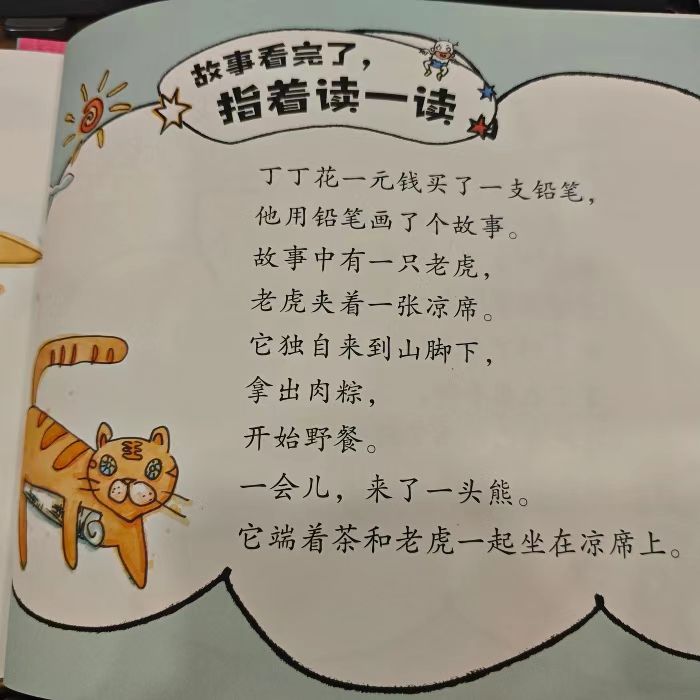 故事看完了，
指着读一读
丁丁花一元钱买了一支铅笔，
他用铅笔画了个故事。
故事中有一只老虎，
老虎夹着一张凉席。
它独自来到山脚下，
拿出肉粽，
开始野餐。
一会儿，来了一头熊。
它端着茶和老虎一起坐在凉席上。